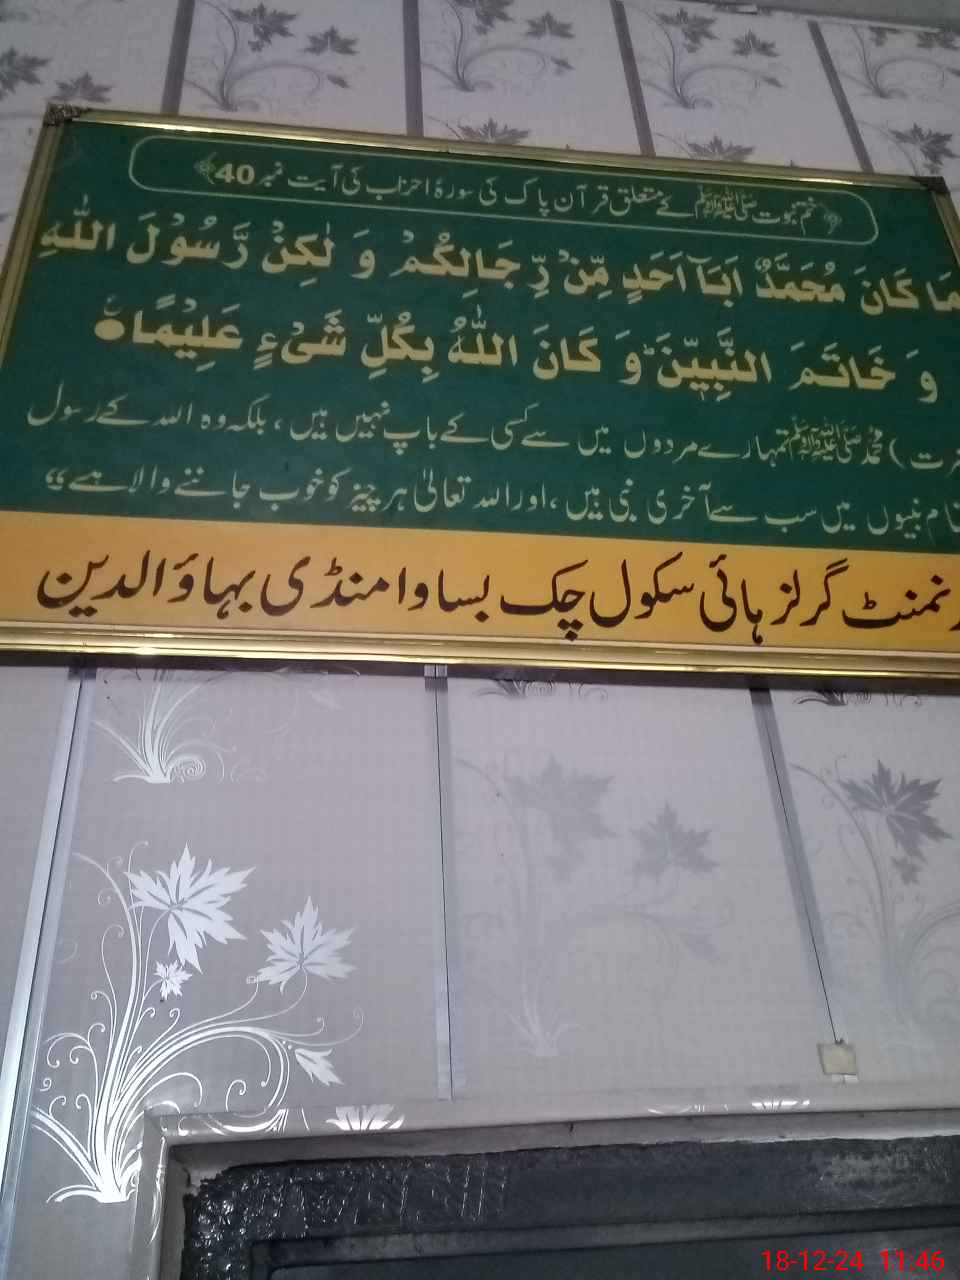 ﴿ختم نبوت ﷺ کے متعلق قرآن پاک کی سورۂ احزاب کی آیت نمبر 40﴾
مَا كَانَ مُحَمَّدٌ اَبَآ اَحَدٍ مِّنْ رِّجَالِكُمْ وَ لٰكِنْ رَّسُوْلَ اللّٰهِ
وَ خَاتَمَ النَّبِيّٖنَؕ وَ كَانَ اللّٰهُ بِكُلِّ شَیْءٍ عَلِيْمًا
رت) محمد ﷺ تمہارے مردوں میں سے کسی کے باپ نہیں ہیں، بلکہ وہ اللہ کے رسول
نبیوں میں سب سے آخری نبی ہیں، اور اللہ تعالیٰ ہر چیز کو خوب جاننے والا ہے“
رنمنٹ گرلز ہائی سکول چک بساوا منڈی بہاؤالدین
18-12-24 11:46